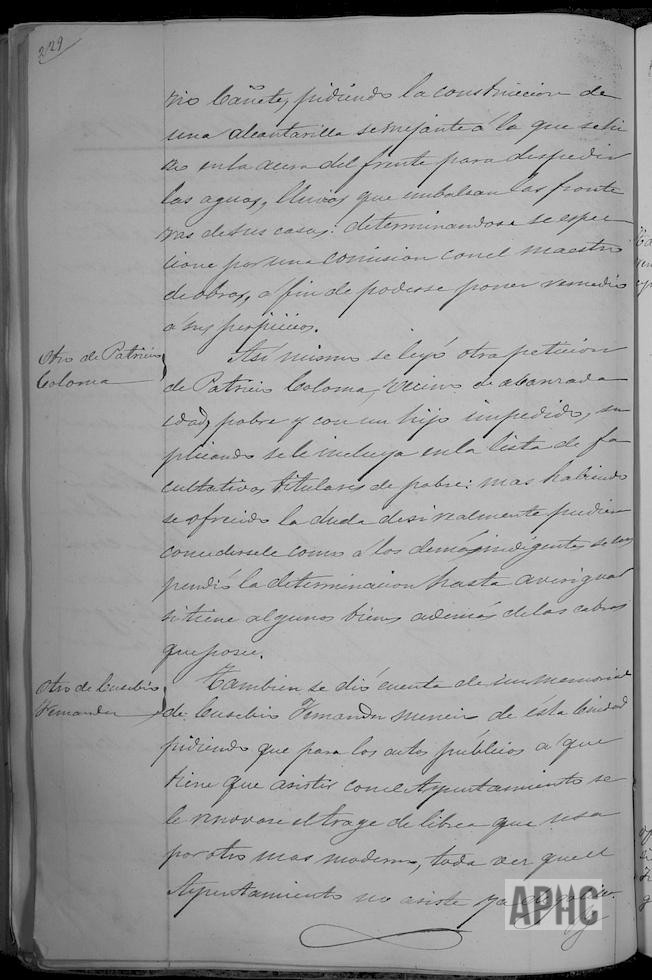 229
rio Cañete, pidiendo la construccion de
una alcantarilla semejante á la que se hi
zo en la acera del frente para despedir
las aguas, lluvias que embalsan las fronte
ras de sus casas: determinandose se espec
cione por una comision con el maestro
de obras, a fin de poderse poner remedio
á sus perjuicios.
Otro de Patricio
Coloma
Así mismo se leyó otra peticion
de Patricio Coloma, vecino de abanzada
edad, pobre y con un hijo impedido, su
plicando se le incluya en la lista de fa
cultativos titulares de pobre: mas habiendo
se ofrecido la duda de si realmente pudiera
concedersele como á los demás indigentes, se sus
pendió la determinacion hasta averiguar
si tiene algunos bienes además de las cabras
que posee.
Otro de Eusebio
Fernandez
Tambien se dió cuenta de un memorial
de Eusebio Fernandez de ésta Ciudad
pidiendo que para los actos públicos á que
tiene que asistir con el Ayuntamiento se
le renovase el trage de librea que usa
por otro mas moderno, toda vez que el
Ayuntamiento no asiste ya de
APHC